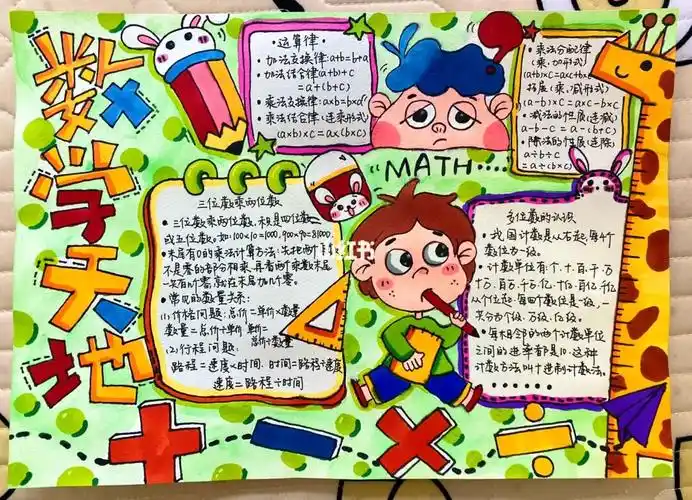 数学天地
·运算律·
·加法交换律:a+b=b+a
·加法结合律:(a+b)+c
=a+(b+c)
·乘法交换律:a×b=b×a
·乘法结合律:(连乘形式)
(a×b)×c=a×(b×c)
·乘法分配律
(乘、加形式)
(a+b)×c=a×c+b×c
拓展(乘、减形式)
(a-b)×c=a×c-b×c
·减法的性质(连减)
a-b-c=a-(b+c)
·除法的性质(连除)
a÷b÷c
=a÷(b×c)
MATH....
三位数乘两位数
·三位数乘两位数,积是四位数
或五位数。如:100×10=1000,900×90=81000.
·末尾有0的乘法计算方法:先把两个
不是零的部分相乘,再看两个乘数末尾
一共有几个零,就在末尾加几个零。
·常见的数量关系:
(1)价格问题:总价=单价×数量
数量=总价÷单价 单价=
总价÷数量
(2)行程问题:
路程=速度×时间、时间=路程÷速度
速度=路程÷时间
多位数的认识
·我国计数是从右起,每4个
数位为一级。
·计数单位有个、十、百、千、万
十万、百万、千万、亿、十亿、百亿、千亿
从个位起,每四个数位是一级,一
共分为个级、万级、亿级。
·每相邻的两个计数单位
之间的进率都是10,这种
计数方法叫十进制计数法。
小红书